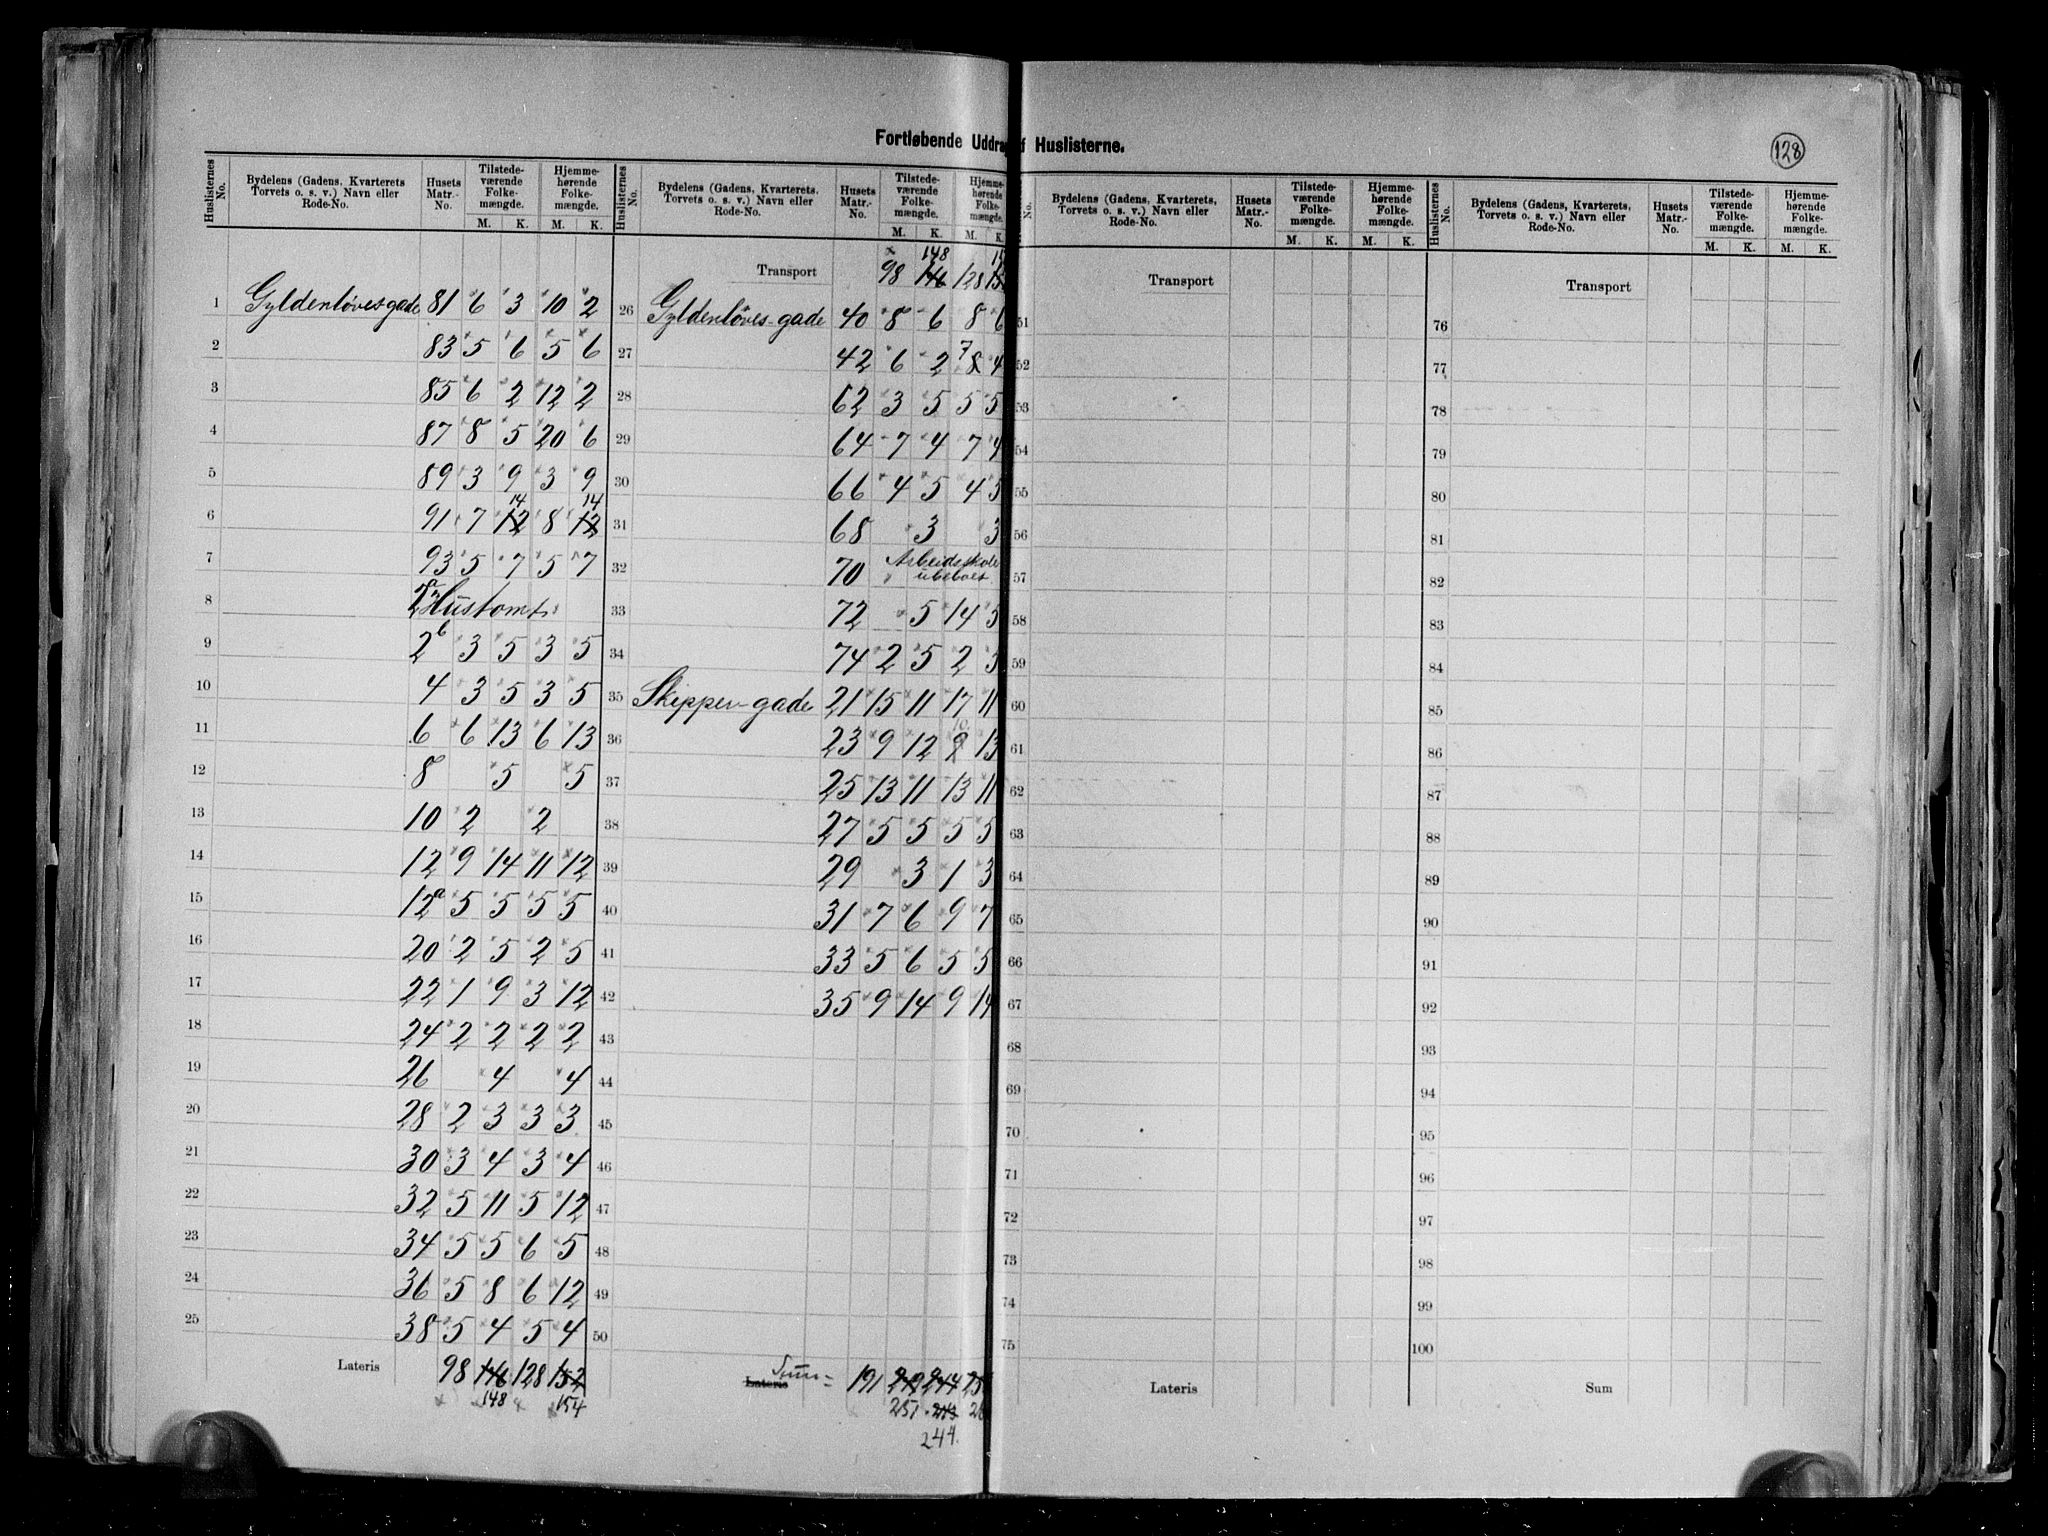 128
Fortløbende Uddrag af Huslisterne.
Huslisternes No. | Bydelens (Gadens, Kvarterets Torvets o. s. v.) Navn eller Rode-No. | Husets Matr.-No. | Tilstede-værende Folke-mængde. M. K. | Hjemme-hørende Folke-mængde. M. K.
1 Gyldenløvesgade 81 6 3 10 2
2 83 5 6 5 6
3 85 6 2 12 2
4 87 8 5 20 6
5 89 3 9 3 9
14 14
6 91 7 12 8 12
7 93 5 7 5 7
8 2a Hustomt
9 2b 3 5 3 5
10 4 3 5 3 5
11 6 6 13 6 13
12 8 5 5
13 10 2 2
14 12 9 14 11 12
15 12a 5 5 5 5
16 20 2 5 2 5
17 22 1 9 3 12
18 24 2 2 2 2
19 26 4 4
20 28 2 3 3 3
21 30 3 4 3 4
22 32 5 11 5 12
23 34 5 5 6 5
24 36 5 8 6 12
25 38 5 4 5 4
Lateris 98 146 128 152
148 154
Huslisternes No. | Bydelens (Gadens, Kvarterets, Torvets o. s. v.) Navn eller Rode-No. | Husets Matr.-No. | Tilstede-værende Folke-mængde. M. K. | Hjemme-hørende Folke-mængde. M. K.
148
Transport 98 146 128
26 Gyldenløves-gade 40 8 6 8 6
7
27 42 6 2 8 4
28 62 3 5 5 5
29 64 7 4 7 4
30 66 4 5 4 5
31 68 3 3
32 70 Arbeidsskole ubeboet
33 72 5 14 5
34 74 2 5 2 5
35 Skipper-gade 21 15 11 17 11
10
36 23 9 12 9 13
37 25 13 11 13 11
38 27 5 5 5 5
39 29 3 1 3
40 31 7 6 9 7
41 33 5 6 5 5
42 35 9 14 9 14
43
44
45
46
47
48
49
50
Lateris Sum = 191 249 244
251 243
244
No. | Bydelens (Gadens, Kvarterets, Torvets o. s. v.) Navn eller Rode-No. | Husets Matr.-No. | Tilstede-værende Folke-mængde. M. K. | Hjemme-hørende Folke-mængde. M. K.
Transport
51
52
53
54
55
56
57
58
59
60
61
62
63
64
65
66
67
68
69
70
71
72
73
74
75
Lateris
Huslisternes No. | Bydelens (Gadens, Kvarterets, Torvets o. s. v.) Navn eller Rode-No. | Husets Matr.-No. | Tilstede-værende Folke-mængde. M. K. | Hjemme-hørende Folke-mængde. M. K.
Transport
76
77
78
79
80
81
82
83
84
85
86
87
88
89
90
91
92
93
94
95
96
97
98
99
100
Sum